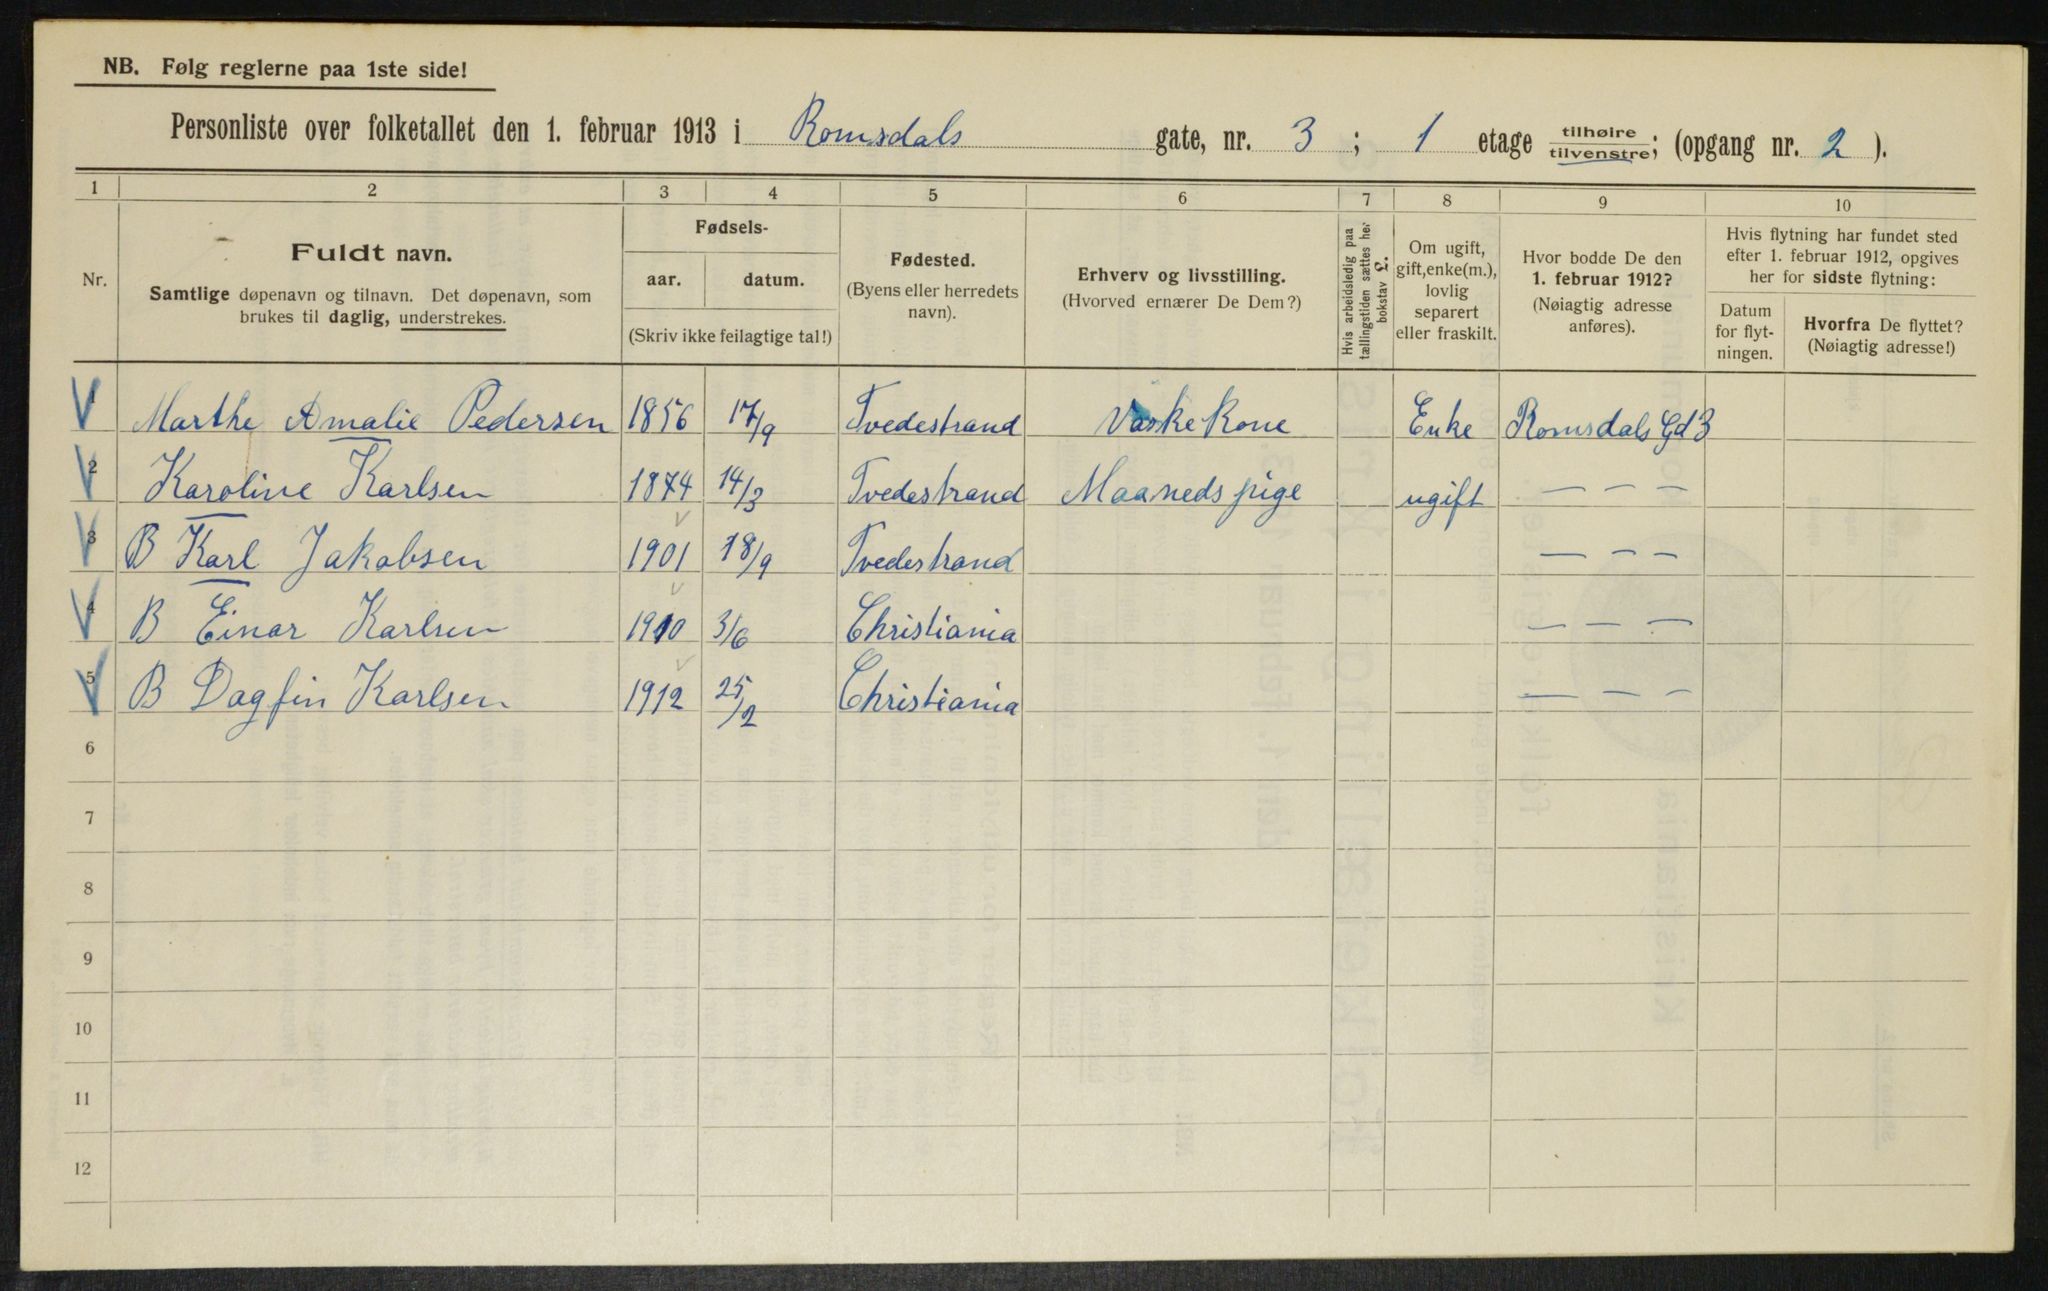 NB. Følg reglerne paa 1ste side!
Personliste over folketallet den 1. februar 1913 i Romsdals gate, nr. 3 ; 1 etage tilhøire tilvenstre; (opgang nr. 2 ).
1 2 3 4 5 6 7 8 9 10
Nr.
Fuldt navn.
Samtlige døpenavn og tilnavn. Det døpenavn, som
brukes til daglig, understrekes.
Fødsels-
aar. datum.
(Skriv ikke feilagtige tal!)
Fødested.
(Byens eller herredets
navn).
Erhverv og livsstilling.
(Hvorved ernærer De Dem?)
Hvis arbeidsledig paa
tællingstiden sættes her
bokstav £.
Om ugift,
gift, enke(m.),
lovlig
separert
eller fraskilt.
Hvor bodde De den
1. februar 1912?
(Nøiagtig adresse
anføres).
Hvis flytning har fundet sted
efter 1. februar 1912, opgives
her for sidste flytning:
Datum
for flyt-
ningen.
Hvorfra De flyttet?
(Nøiagtig adresse!)
1 Marthe Amalie Pedersen 1856 17/9 Tvedestrand Vaske Kone Enke Romsdals Gd 3
2 Karoline Karlsen 1874 14/3 Tvedestrand Maaneds pige ugift — — —
3 B Karl Jakobsen 1901 18/9 Tvedestrand — — —
4 B Einar Karlsen 1910 3/6 Christiania — — —
5 B Dagfin Karlsen 1912 25/2 Christiania — — —
6
7
8
9
10
11
12